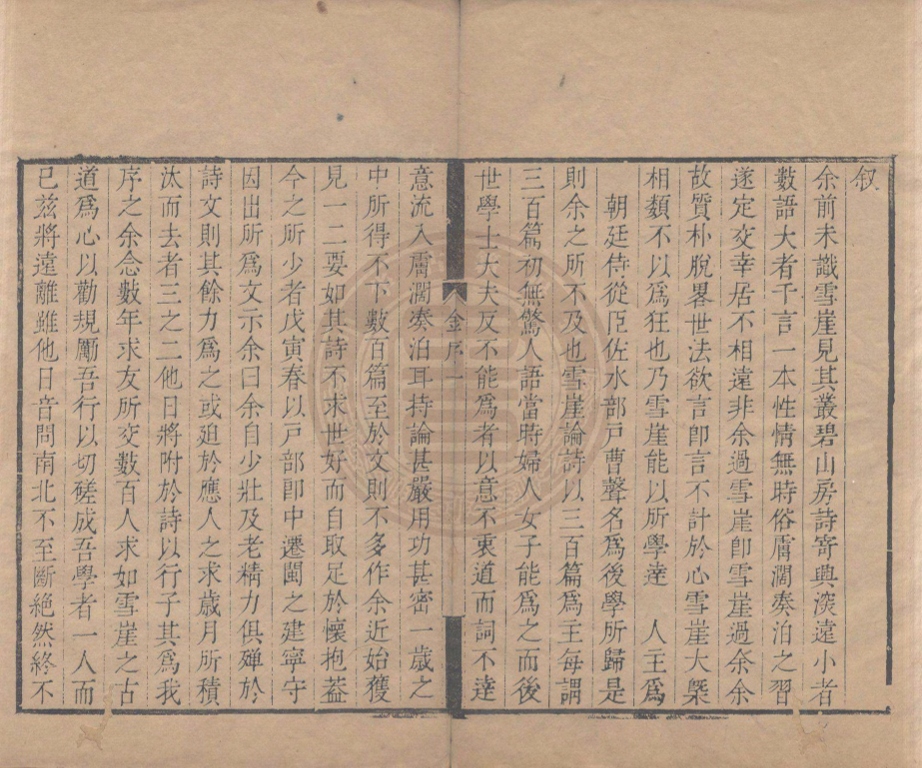 叙
余前未識雪崖見其叢碧山房詩寄興深遠小者
數語大者千言一本性情無時俗膚濶奏泊之習
遂定交幸居不相遠非余過雪崖卽雪崖過余余
故質朴脫畧世法欲言卽言不計於心雪崖大槩
相類不以為狂也乃雪崖能以所學逹 人主爲
朝廷侍從臣佐水部戸曹聲名爲後學所歸是
則余之所不及也雪崖論詩以三百篇爲主每謂
三百篇初無驚人語當時婦人女子能爲之而後
世學士大夫反不能爲者以意不衷道而詞不逹
金序一
意流入膚濶奏泊耳持論甚嚴用功甚密一歲之
中所得不下數百篇至於文則不多作余近始獲
見一二要如其詩不求世好而自取足於懷抱葢
今之所少者戊寅春以戸部郎中遷閩之建寧守
因出所爲文示余曰余自少壯及老精力俱殫於
詩文則其餘力爲之或廹於應人之求歲月所積
汰而去者三之二他日將附於詩以行子其爲我
序之余念數年求友所交數百人求如雪崖之古
道爲心以勸規勵吾行以切磋成吾學者一人而
已兹將遠離雖他日音問南北不至斷絶然終不